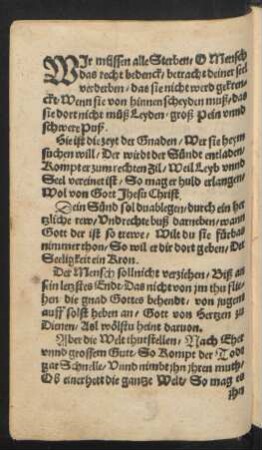 WIr müssen alle Sterben/ O Mensch
das recht bedenck/ betracht deiner seel
verderben/ das sie nicht werd gekren-
ckt/ Wenn sie von hinnen scheyden muß/ das
sie dort nicht müß Leyden/ groß Pein vnnd
schwere Puß.
Hie ist die zeyt der Gnaden/ Wer sie heym
suchen will/ Der wirdt der Sündt entladen/
Kompt er zum rechten Zil/ Weil Leyb vnnd
Seel vereinet ist/ So mag er huld erlangen/
Wol von Gott Jhesu Christ.
Dein Sünd sol du ablegen/ durch ein her
tzliche rew/ Vnd rechte buß darneben/ wann
Gott der ist so trewe/ Wilt du sie fürbas
nimmer thon/ So wil er dir dort geben/ Der
Seeligkeit ein Kron.
Der Mensch soll nicht verziehen/ Biß an
sein letzstes Ende: Das nicht von jm thu flie-
hen die gnad Gottes behendt/ von jugend
auff solst heben an/ Gott von Hertzen zu
Dienen/ Als wölstu heint daruon.
Aber die Welt thut stellen/ Nach Eher
vnnd grossem Gutt/ So Kompt der Todt
gar Schnelle/ Vnnd nimbt jhn jhren muth/
Ob einer hett die gantze Welt/ So mag es
jhn